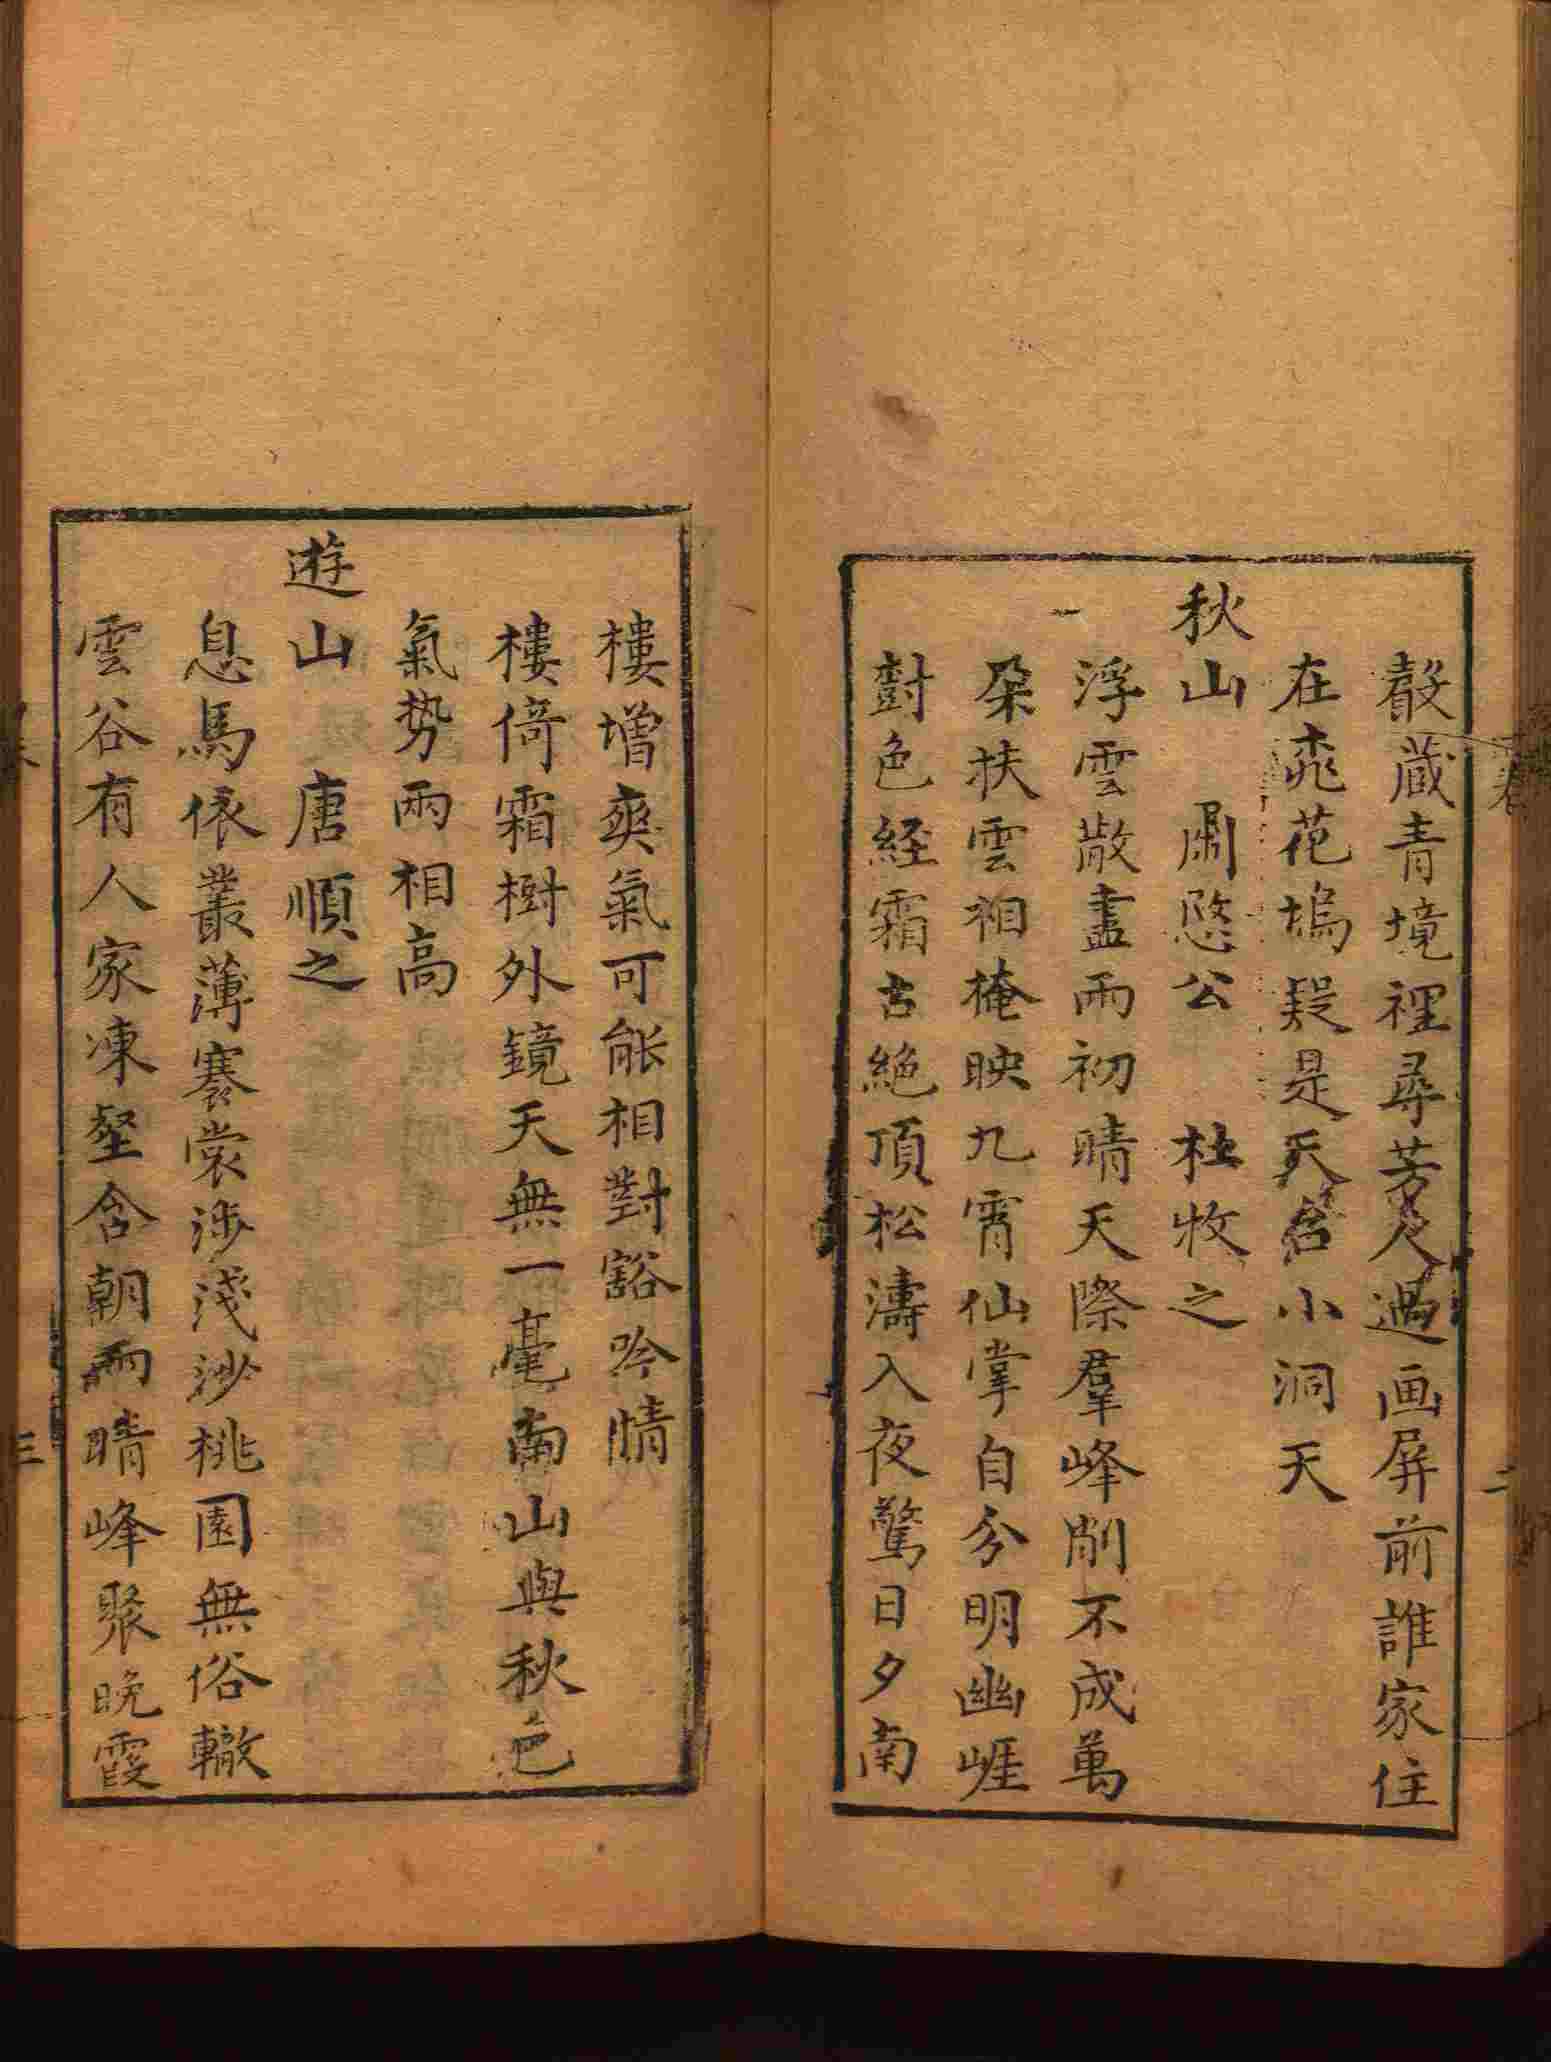 㲉藏青境裡尋芳人過画屏前誰家住
在桃花塢疑是天台小洞天
秋山 肅愍公 杜牧之
浮雲散盡雨初晴天際羣峰削不成萬
朶扶雲相掩映九霄仙掌自分明幽崖
對色経霜古絶頂松濤入夜驚日夕南
樓增爽氣可能相對豁吟情
樓倚霜樹外鏡天無一毫南山與秋色
氣势兩相高
遊山 唐順之
息馬依叢薄褰裳涉淺沙桃園無俗轍
雲谷有人家凍壑含朝雨晴峰聚晚霞
二
三